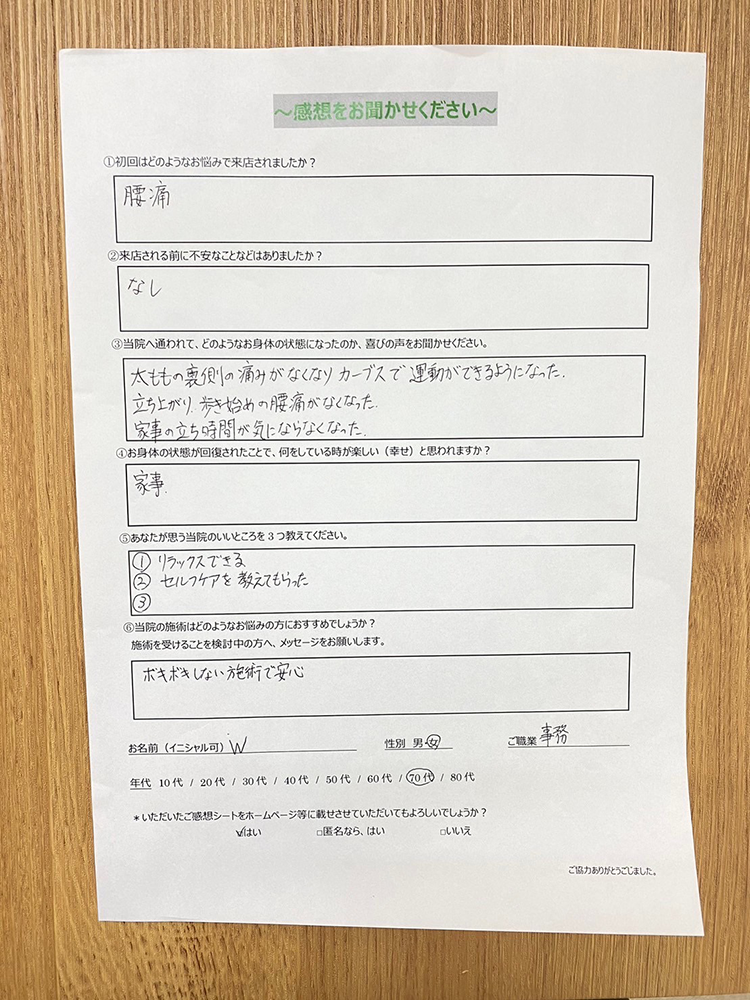 ～感想をお聞かせください～
①初回はどのようなお悩みで来店されましたか？
腰痛
②来店される前に不安なことなどはありましたか？
なし
③当院へ通われて、どのようなお身体の状態になったのか、喜びの声をお聞かせください。
太ももの裏側の痛みがなくなりカーブスで運動ができるようになった.
立ち上がり.歩き始めの腰痛がなくなった.
家事の立ち時間が気にならなくなった.
④お身体の状態が回復されたことで、何をしている時が楽しい（幸せ）と思われますか？
家事.
⑤あなたが思う当院のいいところを3つ教えてください。
① リラックスできる
② セルフケアを教えてもらった
③
⑥当院の施術はどのようなお悩みの方におすすめでしょうか？
施術を受けることを検討中の方へ、メッセージをお願いします。
ボキボキしない施術で安心
お名前（イニシャル可） W 性別 男・女 ご職業 事務
年代 10代 / 20代 / 30代 / 40代 / 50代 / 60代 / 70代 / 80代
＊いただいたご感想シートをホームページ等に載せさせていただいてもよろしいでしょうか？
☑はい □匿名なら、はい □いいえ
ご協力ありがとうごじました。